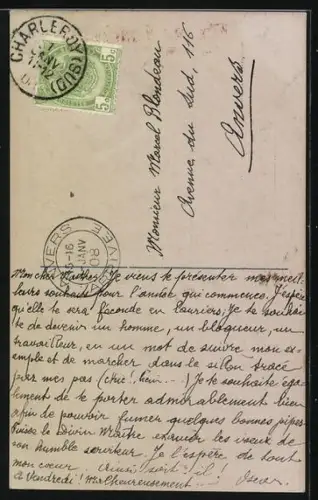 CHARLEROY (SUD)
1
JANV
5c
5c
Monsieur Marcel Blondeau
Avenue du Sud, 116
Anvers
ANVERS
JANV
Mon cher Je viens te présenter mes meil-
leurs souhaits pour l'année qui commence. J'espère
qu'elle te sera féconde en lauriers, Je te souhai-
te de devenir un homme, un bloqueur, un
travailleur, en un mot de suivre mon ex-
emple et de marcher dans le sillon tracé
par mes pas (chic! hein - - -) Je te souhaite éga-
lement de te porter admirablement bien
afin de pouvoir fumer quelques bonnes pipes
Puisse le Divin Maître exaucer les vœux de
son humble serviteur. Je l'espère de tout
mon cœur. Ainsi soit-il!
à Vendredi! Malheureusement...! Oscar